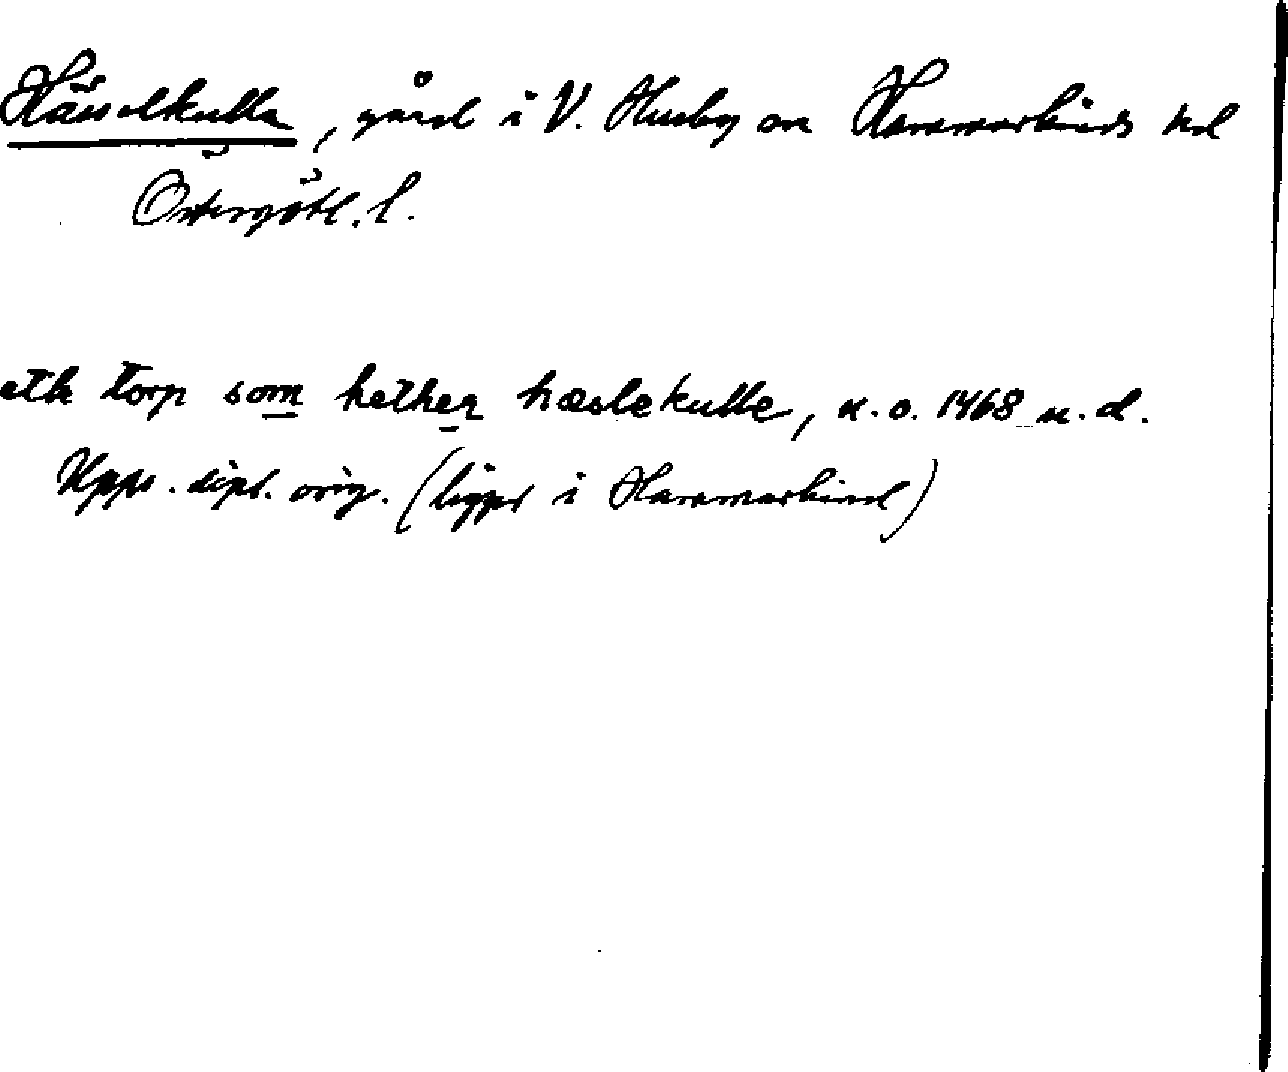 Hässelkulla, gård i V. Husby sn Hammarkinds hd
Östergötl. l.
eth torp som hether hæslekulle, u. o. 1468 u. d.
Upps. dipl. orig. (ligger i Hammarkind)